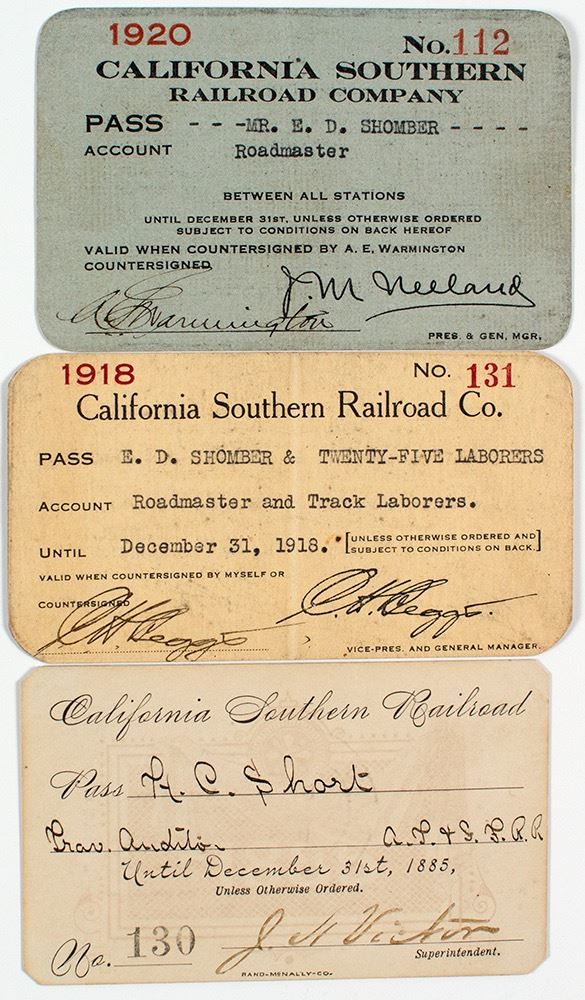 1920 No. 112
CALIFORNIA SOUTHERN
RAILROAD COMPANY
PASS - - -MR. E. D. SHOMBER - - - -
ACCOUNT Roadmaster
BETWEEN ALL STATIONS
UNTIL DECEMBER 31ST, UNLESS OTHERWISE ORDERED
SUBJECT TO CONDITIONS ON BACK HEREOF
VALID WHEN COUNTERSIGNED BY A. E. WARMINGTON
COUNTERSIGNED
J. M Neeland
A E Warmington
PRES. & GEN. MGR.
1918 No. 131
California Southern Railroad Co.
PASS E. D. SHOMBER & TWENTY-FIVE LABORERS
ACCOUNT Roadmaster and Track Laborers.
UNTIL December 31, 1918. [UNLESS OTHERWISE ORDERED AND
SUBJECT TO CONDITIONS ON BACK.]
VALID WHEN COUNTERSIGNED BY MYSELF OR
COUNTERSIGNED
C. H. Beggs. C. H. Beggs.
VICE-PRES. AND GENERAL MANAGER.
California Southern Railroad
Pass H. C. Short
Trav. Auditor A. T. & S. F. R. R
Until December 31st, 1885,
Unless Otherwise Ordered.
No. 130 J. N Victor
Superintendent.
RAND-MCNALLY-CO.